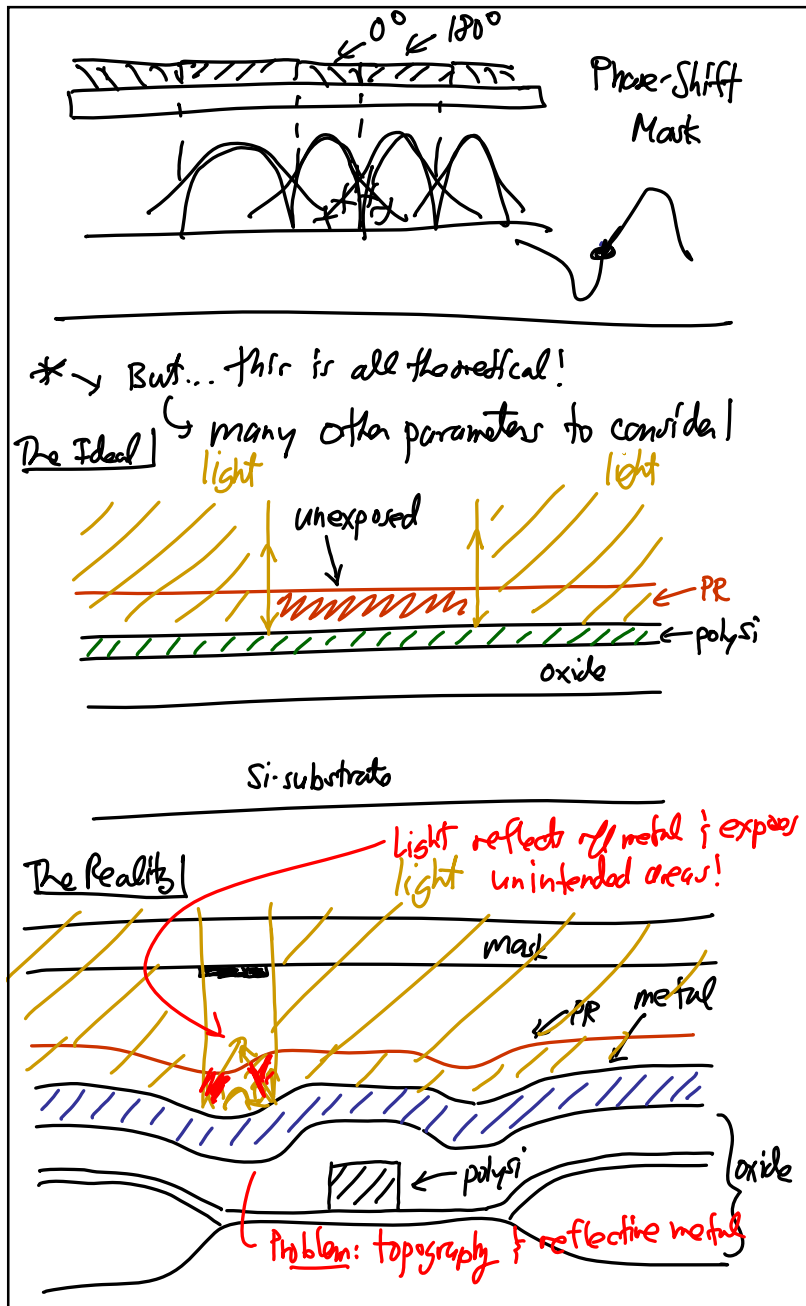 0° 180°
Phase-Shift
Mask
* → But... this is all theoretical!
↳ many other parameters to consider!
The Ideal
light
light
unexposed
PR
polysi
oxide
Si-substrate
Light reflects off metal & exposes
unintended areas!
The Reality
light
mask
PR
metal
polysi
oxide
Problem: topography & reflective metal